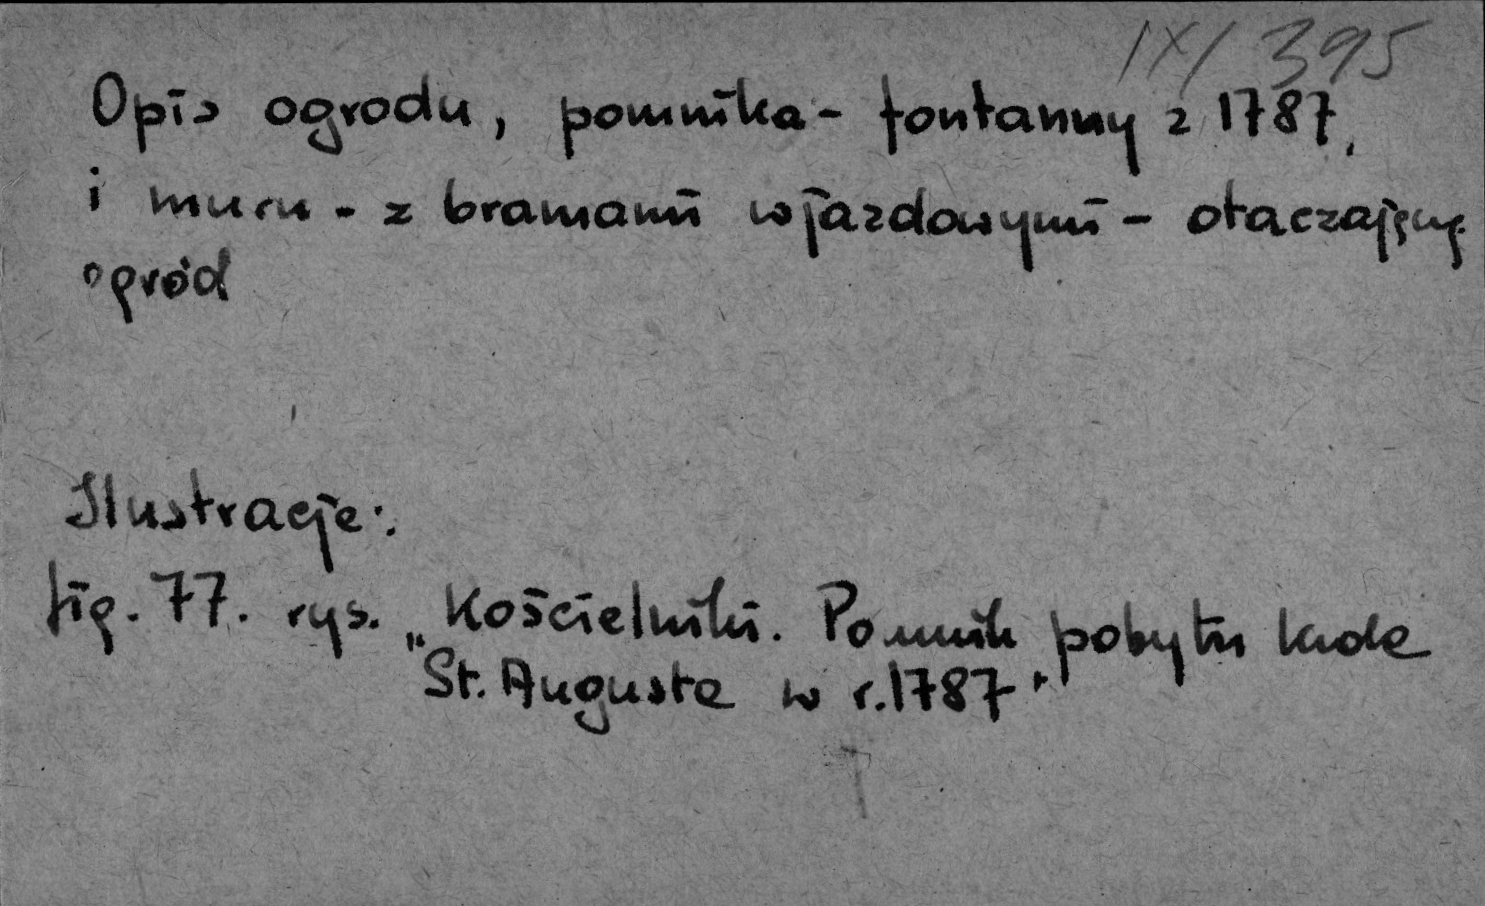 IX/395
Opis ogrodu, pomnika - fontanny z 1787,
i muru - z bramami wjazdowymi - otaczający
ogród
Ilustracje:
fig. 77. rys. „Kościelniki. Pomnik pobytu króla
St. Augusta w r. 1787"